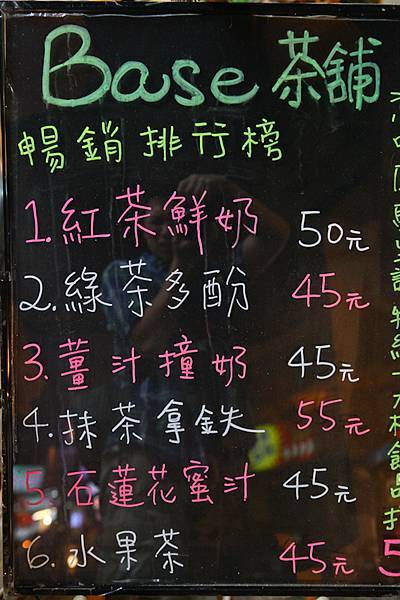 Base 茶舖
暢銷排行榜
1.紅茶鮮奶 50元
2.綠茶多酚 45元
3.薑汁撞奶 45元
4.抹茶拿鉄 55元
5.石蓮花蜜汁 45元
6.水果茶 45元